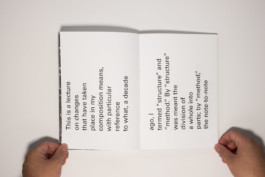 This is a lecture
on changes
that have taken
place in my
composition means,
with particular
reference
to what, a decade
ago, I
termed "structure" and
"method." By "structure"
was meant the
division of
a whole into
parts; by "method,"
the note-to-note